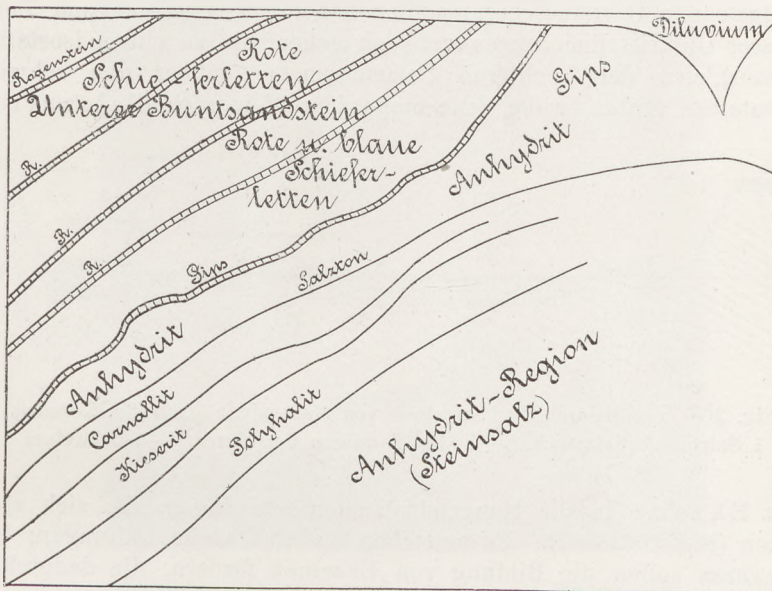 Diluvium
Rogenstein
Rote
Schie-ferletten
Gips
Unterer Buntsandstein
Rote u. blaue
Schiefer-
letten
Anhydrit
R.
R.
R.
Gips
Salzton
Anhydrit
Carnallit
Kieserit
Polyhalit
Anhydrit-Region
(Steinsalz)